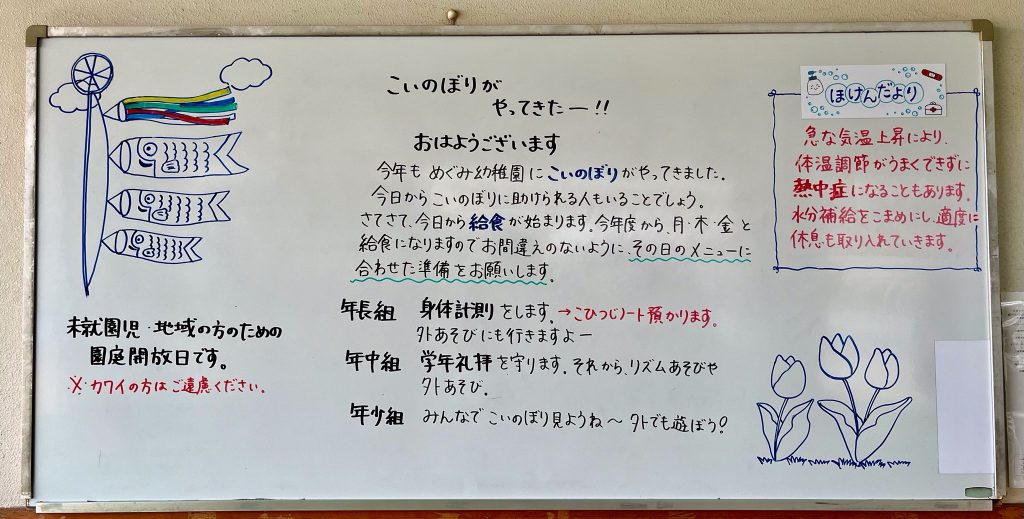 こいのぼりが
やってきたー!!
おはようございます
今年も めぐみ幼稚園にこいのぼりがやってきました。
今日からこいのぼりに助けられる人もいることでしょう。
さてさて、今日から給食が始まります。今年度から、月・木・金 と
給食になりますのでお間違えのないように、その日のメニューに
合わせた準備をお願いします。
年長組 身体計測をします。→こひつじノート預かります。
外あそびにも行きますよー
年中組 学年礼拝を守ります。それから、リズムあそびや
外あそび。
年少組 みんなで こいのぼり見ようね〜 外でも遊ぼう!
未就園児・地域の方のための
園庭開放日です。
※カワイの方はご遠慮ください。
ほけんだより
急な気温上昇により、
体温調節がうまくできずに
熱中症になることもあります。
水分補給をこまめにし、適度に
休息も取り入れていきます。